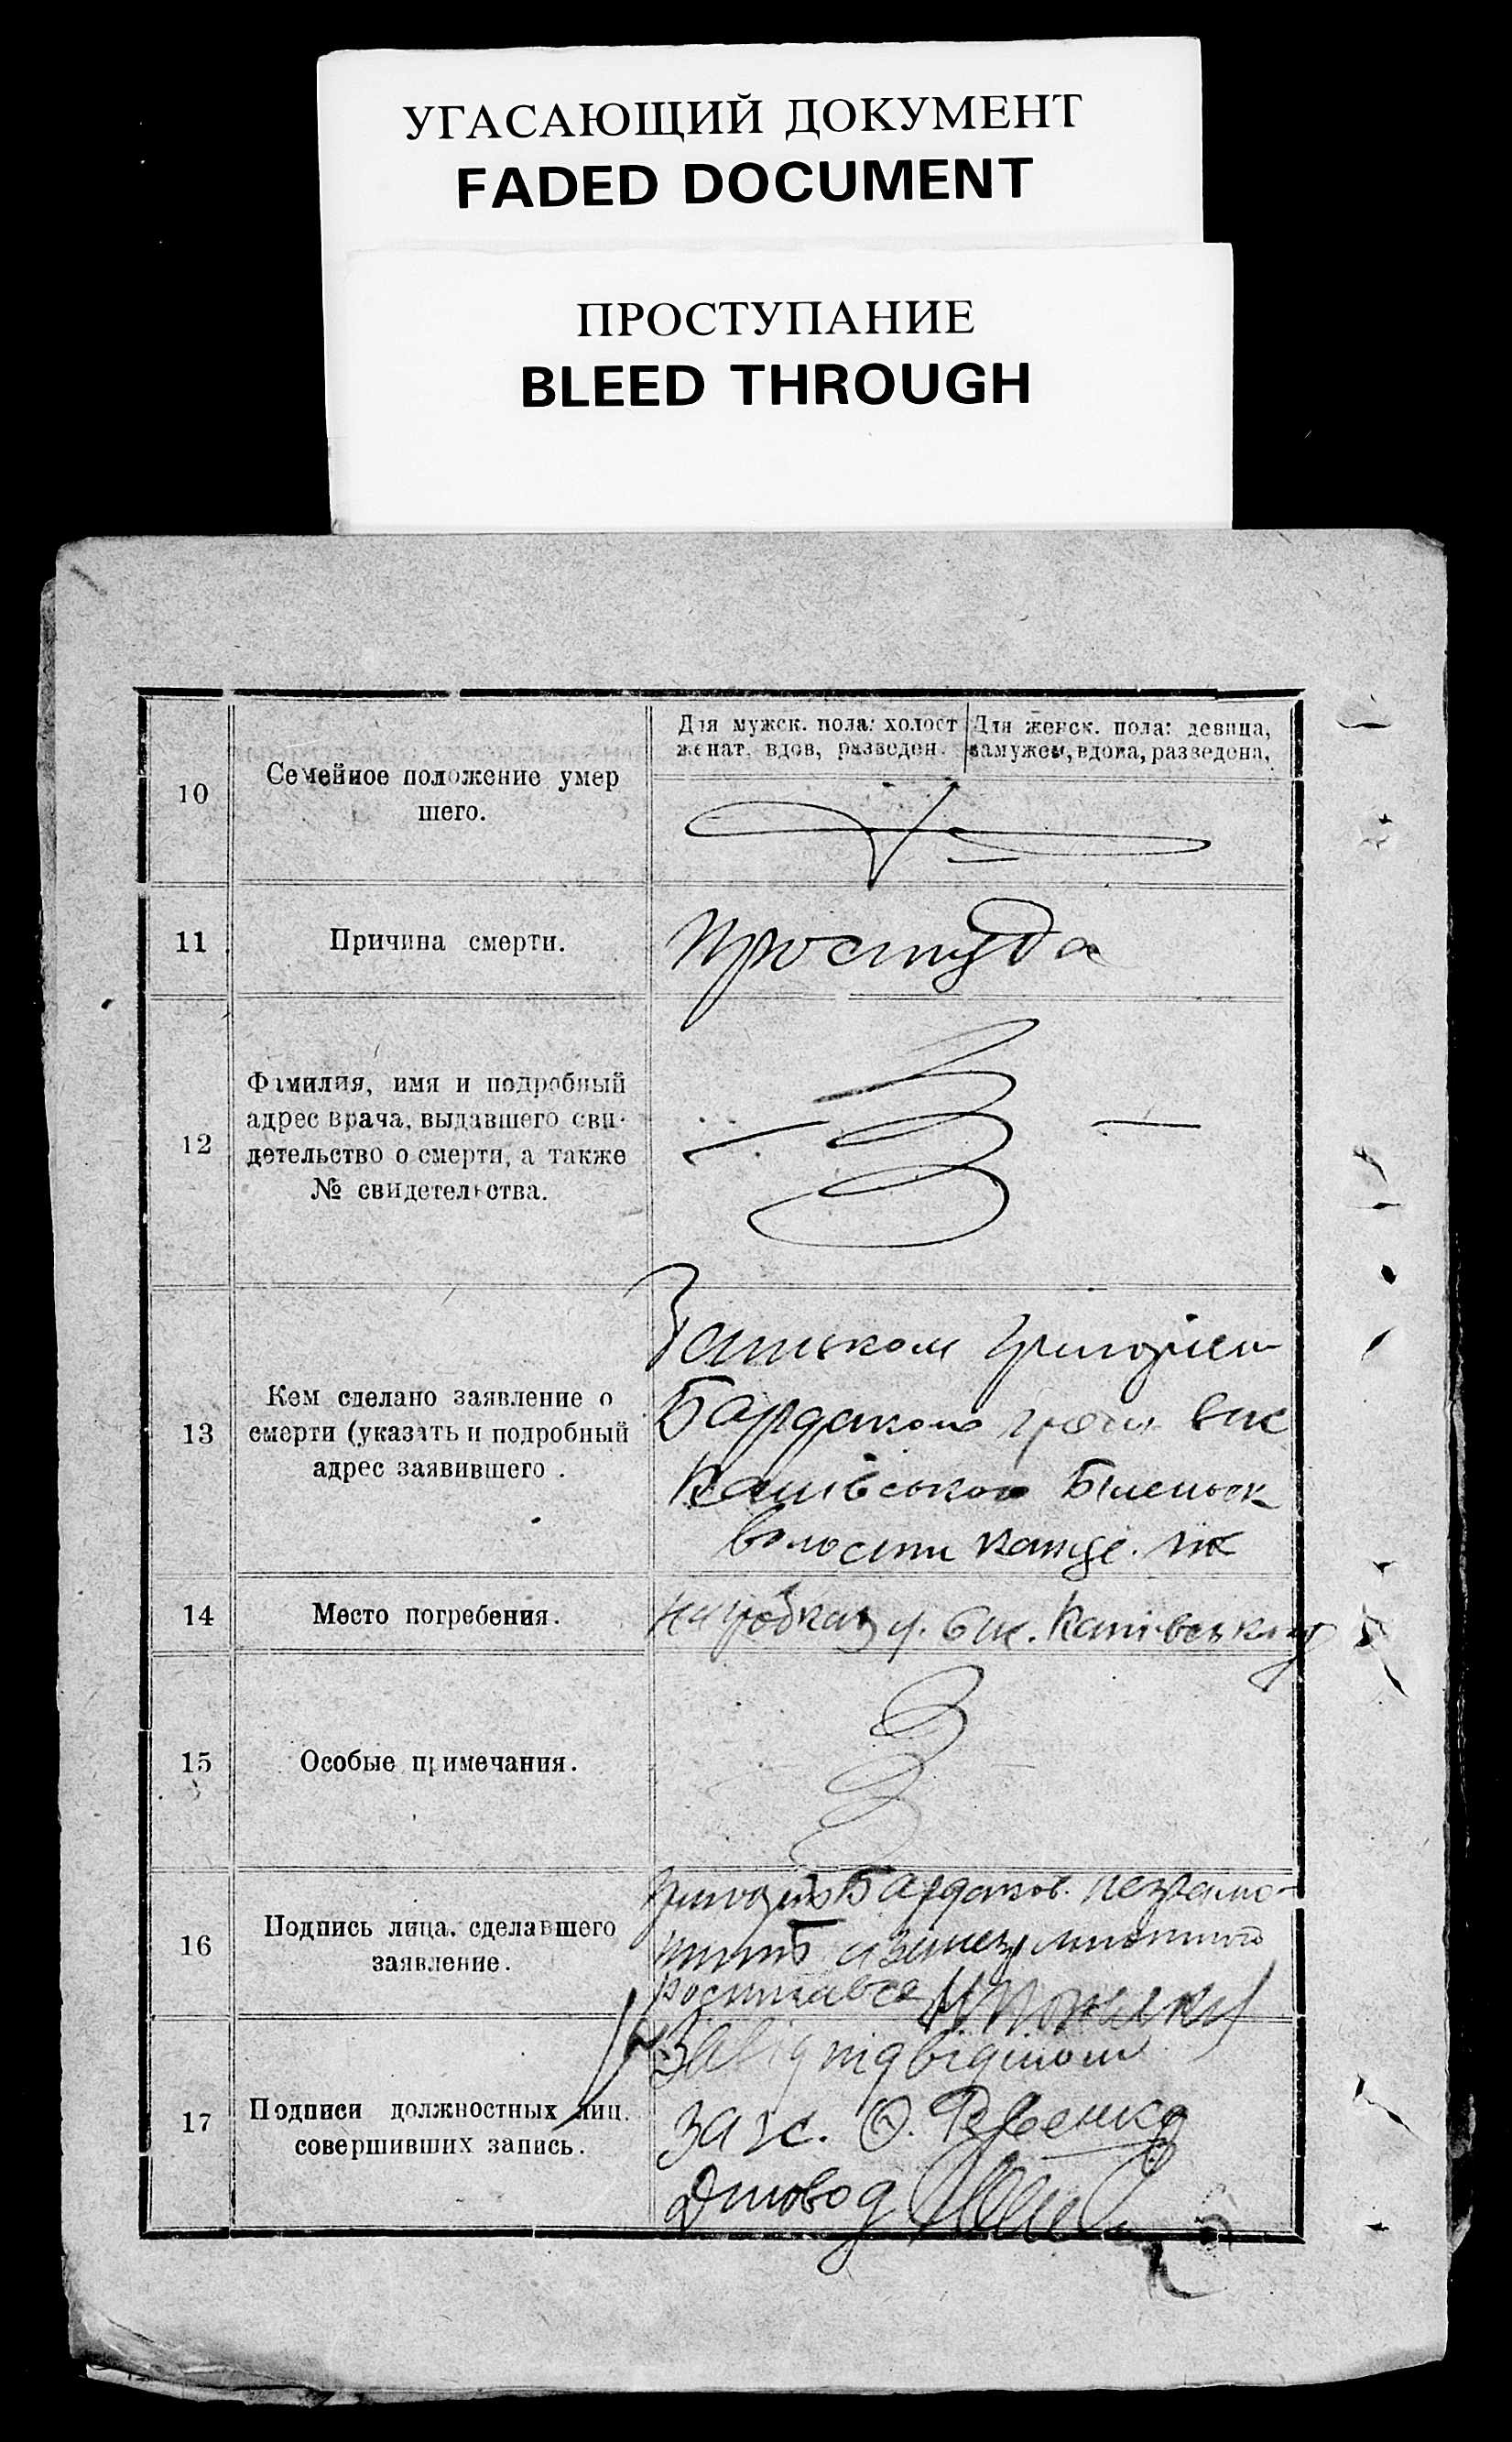 УГАСАЮЩИЙ ДОКУМЕНТ
FADED DOCUMENT
ПРОСТУПАНИЕ
BLEED THROUGH
10
Семейное положение умер
шего.
Для мужск. пола: холост
женат, вдов, разведен.
Для женск. пола: девица,
замужем, вдова, разведена,
11
Причина смерти.
простуда
12
Фамилия, имя и подробный
адрес врача, выдавшего сви-
детельство о смерти, а также
№ свидетельства.
13
Кем сделано заявление о
смерти (указать и подробный
адрес заявившего.
Батьком Григорієм
Бардаком вис
Канівського Біленьск
волости
14
Место погребения.
на гробках у. вис. Канівському
15
Особые примечания.
16
Подпись лица, сделавшего
заявление.
Григорій Бардаков. неграмо-
тний а за него
росписався
17
Подписи должностных лиц,
совершивших запись.
Завід підвідділом
загс. О. Ревенко
Діловод